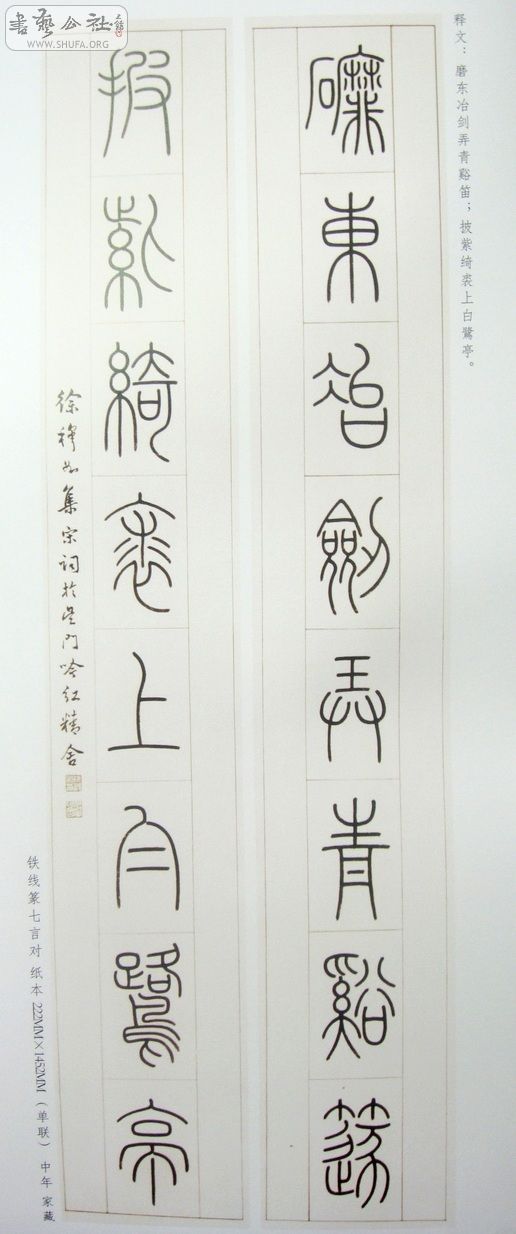 書藝公社
WWW.SHUFA.ORG
释文：磨东冶剑弄青谿笛；披紫绮裘上白鹭亭。
礳東冶劍弄青谿篴
披紫綺裘上白鷺亭
徐穆如集宋词於吴门吟红精舍
铁线篆七言对 纸本 222MM×1452MM（单联） 中年 家藏